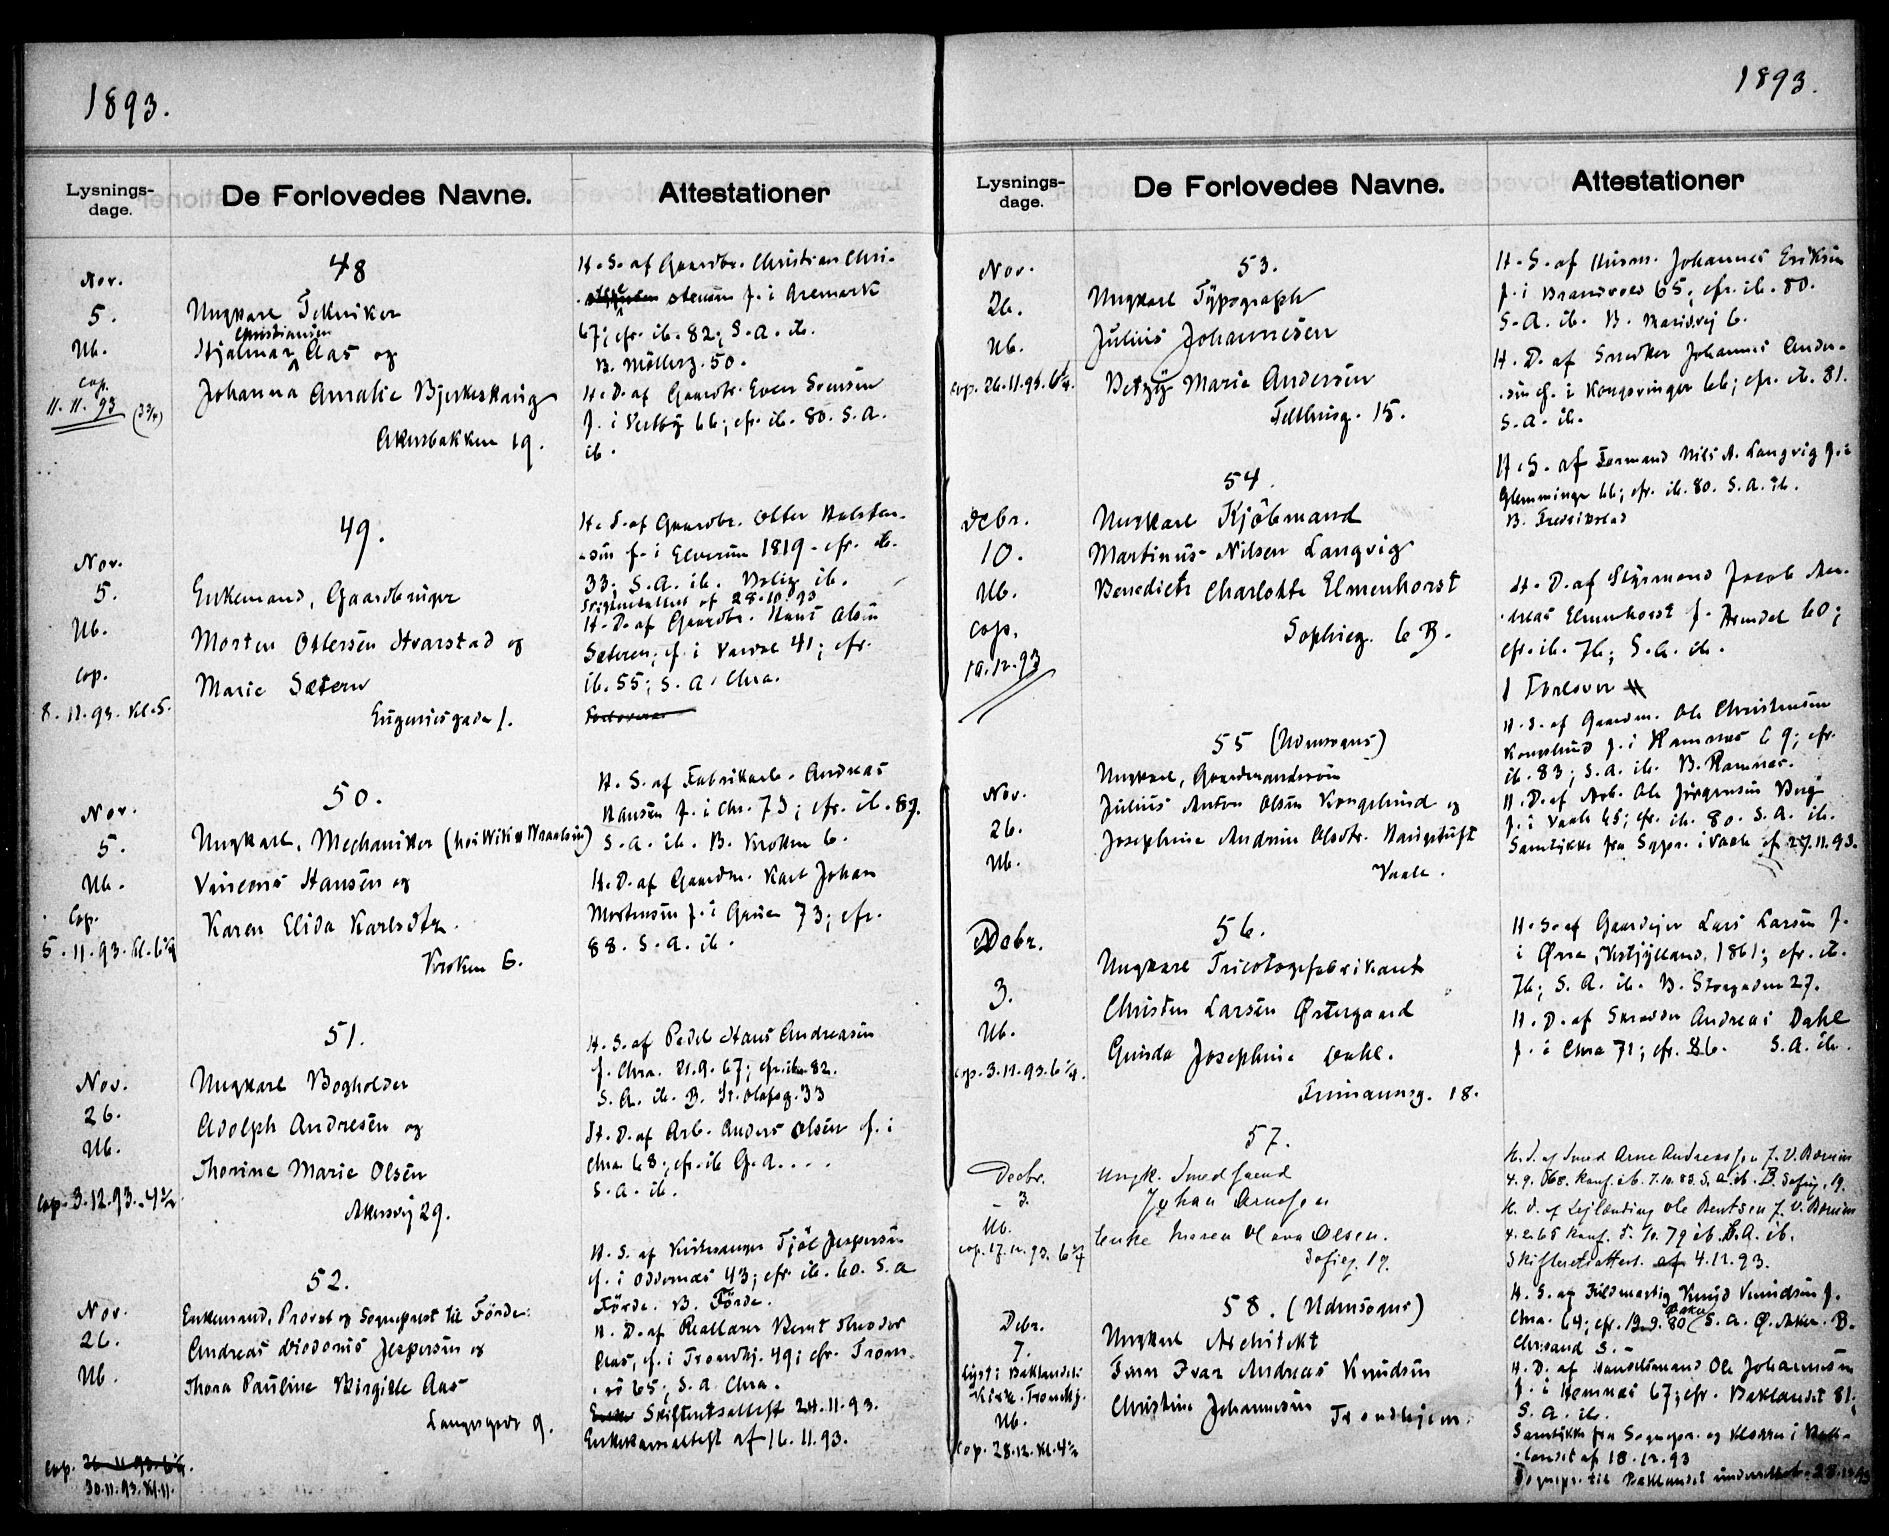 1893.
Lysnings-
dage.
De Forlovedes Navne.
Attestationer
48
Nov.
5.
Ub.
cop.
11.11.93
Ungkarl Tekniker
Christiansen
Hjalmar Aas og
Johanna Amalie Bjerkeskaug
Akersbakken 19.
H. S. af Gaardbr. Christian Chri-
stensen f. i Aremark
67; cfr. ib. 82; S. A. ib.
B. Möllerg. 50.
H. D. af Gaardbr. Even Svensen
f. i Vestby 66; cfr. ib. 80. S. A.
ib.
49.
Nov.
5.
Ub.
cop.
8.11.93. Kl. 5.
Enkemand, Gaardbruger
Morten Ottersen Hvarstad og
Marie Sætern
Eugeniesgade 1.
H. S. af Gaardbr. Otter Halsten-
sen f. i Elverum 1819 - cfr. ib.
33; S. A. ib. Bolig ib.
Skifteattest af 28.10.93
H. D. af Gaardbr. Hans Olsen
Sæteren, f. i Vardal 41; cfr.
ib. 55; S. A. Chra.
Forlovere
50.
Nov.
5.
Ub.
Cop.
5.11.93. kl. 6 1/4
Ungkarl, Mechaniker
Vincens Hansen og
Karen Elida Karlsdtr.
Kroken 6.
H. S. af Fabrikarb. Andreas
Hansen f. i Chr. 73; cfr. ib. 87.
S. A. ib. B. Kroken 6.
H. D. af Gaardm. Karl Johan
Mortensen f. i Grue 73; cfr.
88. S. A. ib.
51.
Nov.
26.
Ub.
Cop. 3.12.93. 4 1/2
Ungkarl Bogholder
Adolph Andresen og
Thorine Marie Olsen
Akersvej 29.
H. S. af Pedel Hans Andreasen
f. Chra. 21.9.67; cfr. ib. 82.
S. A. ib. B. St. Olafsg. 33
H. D. af Arb. Anders Olsen f. i
Chra 68; cfr. ib G. A. . . .
S. A. ib.
52.
Nov.
26.
Ub.
cop. 26.11.93. 6 1/4.
30.11.93. Kl. 11.
Enkemand, Provst og Sognepræst til Förde:
Andreas Diodonis Jespersen og
Thora Pauline Birgitte Aas
Langesgade 9.
H. S. af Kirkesanger Fjöl Jespersen
f. i Oddernæs 43; cfr. ib. 60. S. A
Förde. B. Förde.
H. D. af Reallærer Bernt Theodor
Aas, f. i Trondhj. 49; cfr. Trom-
sö 65; S. A. Chra.
Skifteretsattest 24.11.93.
Enkekasseattest af 16.11.93.
1893.
Lysnings-
dage.
De Forlovedes Navne.
Attestationer
53.
Nov.
26.
Ub.
cop. 26.11.93. 6 1/4.
Ungkarl Typograph
Julius Johannesen
Betzy Marie Andersen
Telthusg. 15.
H. S. af Husm. Johannes Eriksen
f. i Brandvold 65; cfr. ib. 80.
S. A. ib. B. Maridvej 6.
H. D. af Snedker Johannes Ander-
sen f. i Kongsvinger 66; cfr. ib. 81.
S. A. ib.
54.
Decbr.
10.
Ub.
cop.
10.12.93
Ungkarl Kjöbmand
Martinus Nilsen Langvig
Benedicte Charlotte Elmenhorst
Sophieg. 6 B.
H. S. af Formand Nils A. Langvig f. i
Glemminge 66; cfr. ib. 80. S. A. ib.
B. Fredrikstad
H. D. af Styrmand Jacob An-
dreas Elmenhorst f. Arendal 60;
cfr. ib. 76; S. A. ib.
1 Forlover
55 (Udensogns)
Nov.
26.
Ub.
Ungkarl, Gaardmandssön
Julius Anton Olsen Kongslund og
Josephine Andrine Olsdtr. Haugstuft
Vaale.
H. S. af Gaardm. Ole Christensen
Kongslund f. i Ramnæs 69; cfr.
ib. 83; S. A. ib. B. Ramnæs.
H. D. af Arb. Ole Jörgensen Berg
f. i Vaale 65; cfr. ib. 80. S. A. ib.
Samtykke fra Sgpr. i Vaale af 27.11.93.
56.
Decbr.
3.
Ub.
cop. 3.12.93. 6 1/4.
Ungkarl Tricotagefabrikant
Christen Larsen Østergaard
Gunda Josephine Dahl.
Frimannsg. 18.
H. S. af Gaardejer Lars Larsen f.
i Ørre, Vestjylland, 1861; cfr. ib.
76; S. A. ib. B. Storgaden 27.
H. D. af Skrædder Andreas Dahl
f. i Chra 71; cfr. 86. S. A. ib.
57.
Decbr.
3.
Ub.
cop. 17.12.93. 6 1/4
Ungk. Smedsvend
Johan Arnesen
Enke Maren Olava Olsen.
Sofieg. 19.
H. S. af Smed Arne Andreassen f. V. Borein
4.9.68. konf. ib. 7.10.83. S. A. ib. B. Sofieg. 19.
H. D. af Lejlænding Ole Bentsen f. V. Borein
4.2.65 konf. 5.10.79 ib. S. A. ib.
Skifteretsattest. af 4.12.93.
58. (Udensogns)
Decbr.
7.
Lyst i Baklandets
Kirke. Trondhj.
Ub.
Cop. 28.12. Kl. 4 1/2
Ungkarl Architekt
Finn Ivar Andreas Knudsen
Christine Johannesen
Trondhjem.
H. S. af Fuldmægtig Knud Knudsen f.
Chra. 64; cfr. 19.9.80 S. A. Ø. Aker. B.
Chrsand S.
H. D. af Handelsmand Ole Johannesen
f. i Hemnæs 67; cfr. Baklandet 81;
S. A. ib.
Samtykke fra Sognepr. og Klokker i Bak-
landet af 18.12.93
Sognepr. til Baklandet underrettet. 28.12.93